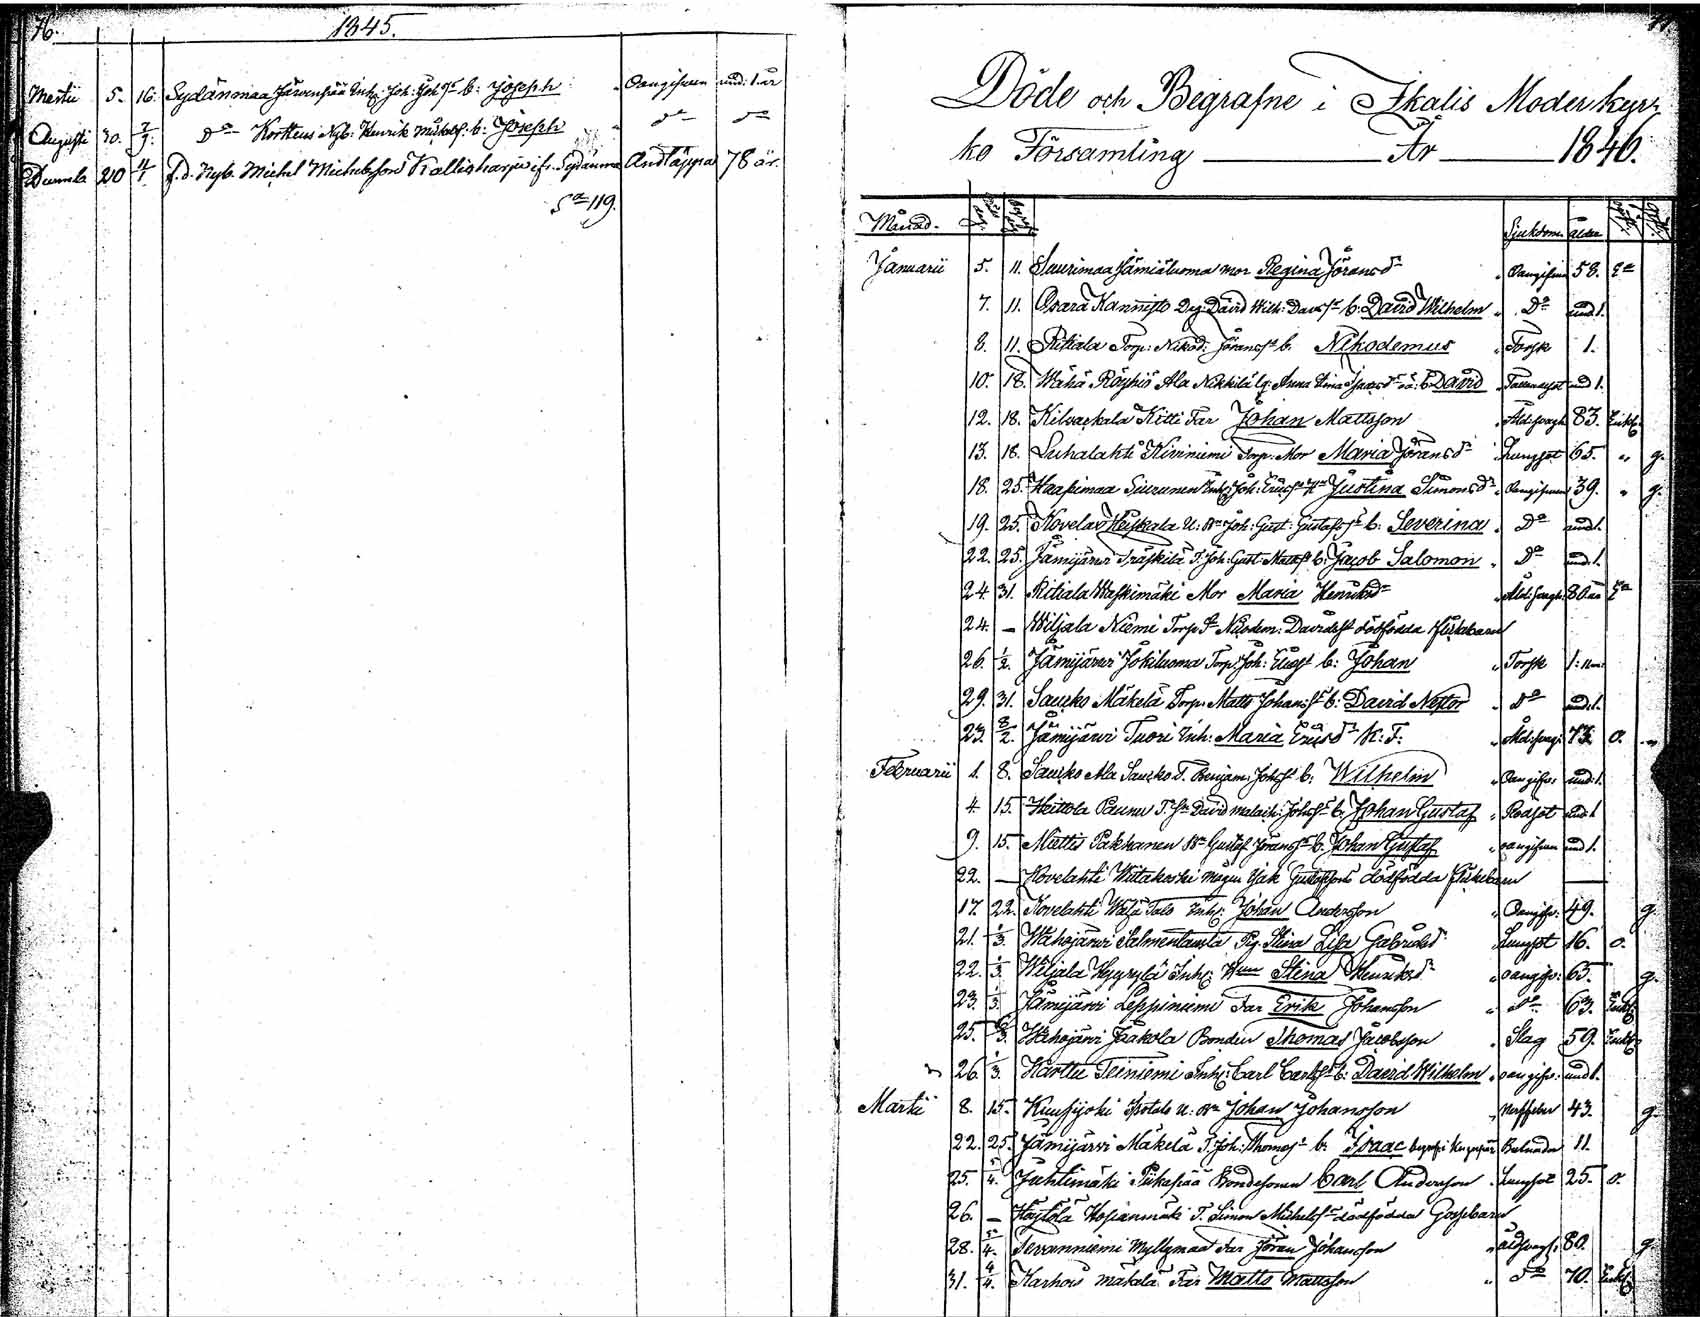 76.
1845.
Martii 5. 16. Sydänmaa Järvenpää Inh: Joh: Joh:sn b: Joseph Oangifven und: 1. år
Augusti 30. 7/9. Do Korttens Nyb: Henrik b: Joseph do do
20 4/1. f.d. Nyb. Michel Michelsson Kallioharju ifr. Sydänmaa Andtäppa 78 år.
Sa 119.
77.
Döde och Begrafne i Ikalis Moderkyr=
ko Församling År 1846.
Månad. Sjukdom ålder
Januarii 5. 11. Suurimaa Jämiäluoma mor Regina Jöransdr Oangifven 58. Ea
7. 11. Osara Kannisto Drg: David Wilh: Davidssn b: David Wilhelm Do und 1.
8. 11. Riitiala Torp: Nikod: Jöranssn b. Nikodemus Torsk 1.
10. 18. Wähä Röyhiö Ala Nikkilä Anna Lina b: David und 1.
12. 18. Kilvakkala Kitti Far Johan Mattsson Ålderdsvagh 83. Enkl.
13. 18. Luhalahti Kiviniemi Torp. Mor Maria Jöransdr Lungsot 65. " g.
18. 25. Haapimaa Siuronen Inh: Joh: Ericss Hu Justina Simonsdr Oangifven 39. " g.
19. 25. Kovelax Heiskala U: Bn Joh: Gust: Gustafssn b: Severina Do und 1.
22. 25. Jämijärvi Träskilä T. Joh: Gust Mattss b: Jacob Salomon Do und: 1.
24. 31. Riitiala Waskimäki Mor Maria Henriksdr Ålderdsvagh: 80 år Ea
24. — Wiljala Niemi Torp Nikodem: Davidssn dödfödda flickbarn
26. 1/2. Jämijärvi Jokiluoma Torp. Joh: Ericss b: Johan Torsk 1:
29. 31. Sauko Mäkelä Torp. Matts Johanss b: David Nestor Do und: 1.
23. 8/2. Jämijärvi Tuori Inh: Maria Ericsdr K: F: Ålderdsvagh: 73. o. "
Februarii 1. 8. Sauko Ala Sauko T. Benjam: Johss b: Wilhelm Oangifv: und: 1.
4 15. Heittola Paunu T. Sn David Malach: Johss b: Johan Gustaf Rödsot und: 1
9. 15. Miettis Pakkanen Bn Gustaf Jöranss b: Johan Gustaf oangifven und 1.
22. — Kovelahti Wiitakoski Gustafssons dödfödda flickebarn
17. 22. Kovelahti Talo Inh: Johan Andersson Oangifv: 49. g.
21. 1/3. Wahojärvi Salmentausta Pig. Stina Lisa Gabrielsdr Lungsot 16. o.
22. 1/3. Wiljala Hyyrylä Inh: Hun Stina Henriksdr oangifv: 65. g.
23. 1/3. Jämijärvi Leppiniemi Far Erik Johansson do 63. Enkl.
25. 8/3. Wahojärvi Jaakola Bonden Thomas Jacobsson Slag 59. Enkl.
26. 1/3. Karttu Teiniemi Inh: Carl Carlss b: David Wilhelm oangifv: und 1.
Martii 8. 15. Kuusijoki Isotalo U: Bn Johan Johansson Nerffeber 43. g.
22. 25. Jämijärvi Mäkelä T. Joh: Thomass b: Isaac 11.
25. 5/4. Juhtimäki Piikepää Bondesonen Carl Andersson Lungsot 25. o.
26. — Höytölä T. Simon Michelss dödfödda Gossebarn
28. 5/4. Tevaniemi Myllymaa Far Jöran Johansson åldsvagh: 80. g.
31. 4/4. Karhois Mäkelä Far Matts Mattsson Do 70. Enkl.